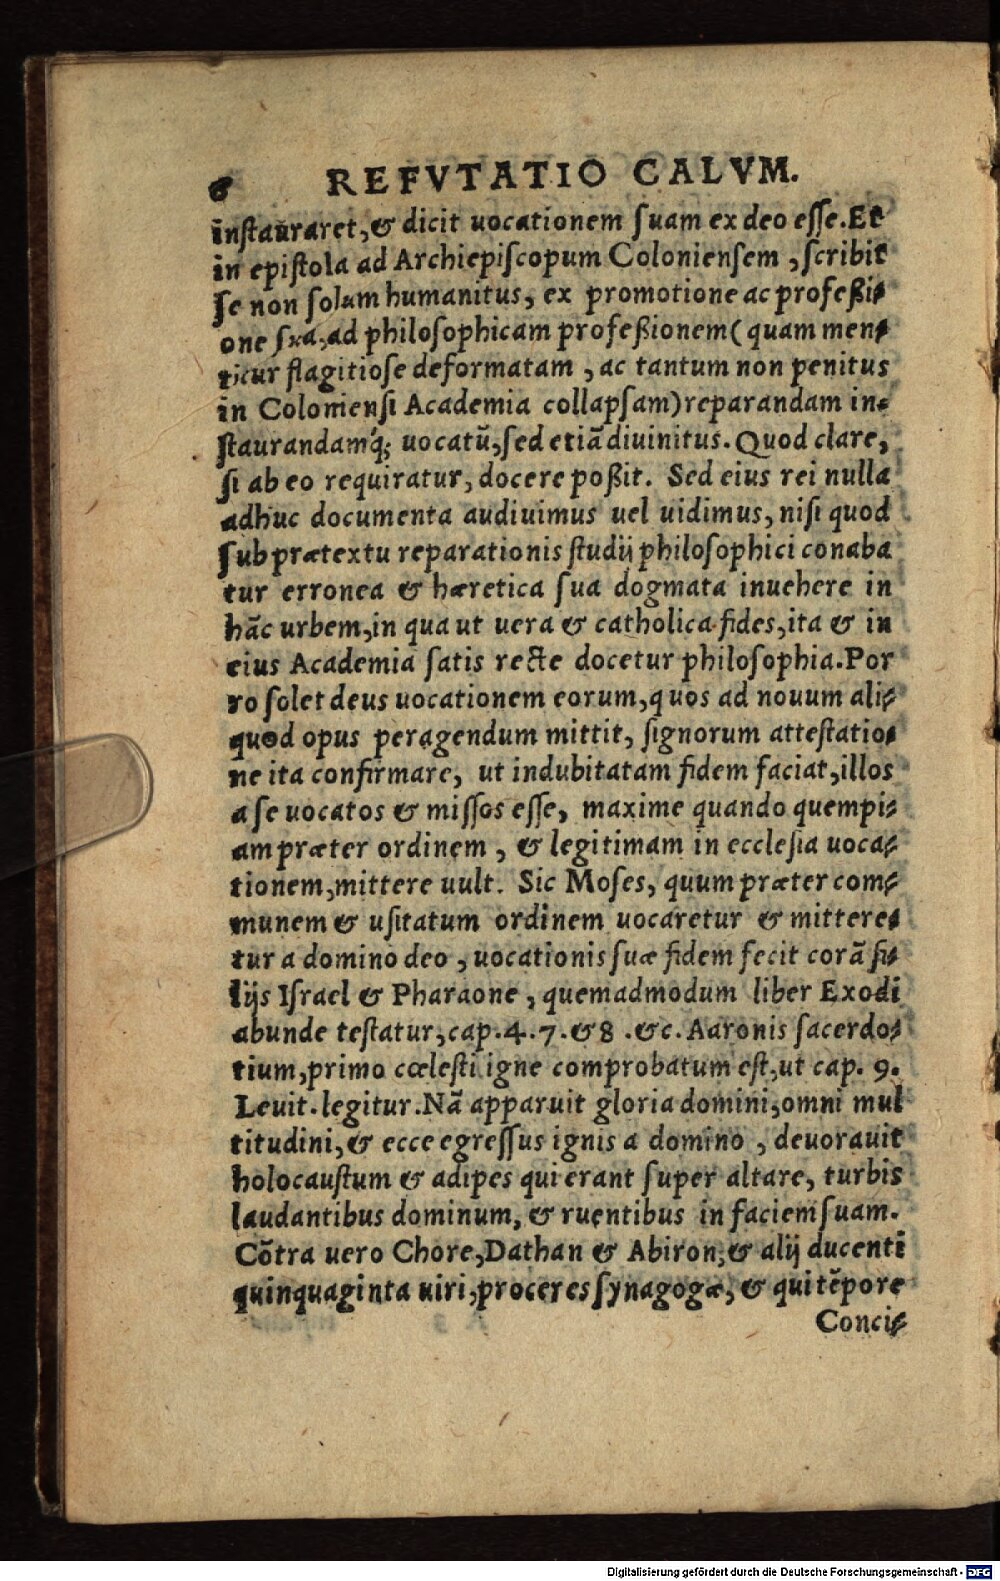 6 REFVTATIO CALVM.
instauraret, & dicit uocationem ſuam ex deo eſſe. Et
in epiſtola ad Archiepiſcopum Colonienſem, ſcribit
ſe non ſolum humanitus, ex promotione ac profeßi⸗
one ſua, ad philoſophicam profeßionem (quam men⸗
titur flagitioſe deformatam, ac tantum non penitus
in Colonienſi Academia collapſam) reparandam in⸗
ſtaurandamq́; uocatū, ſed etiā diuinitus. Quod clare,
ſi ab eo requiratur, docere poßit. Sed eius rei nulla
adhuc documenta audiuimus uel uidimus, niſi quod
ſub prætextu reparationis ſtudij philoſophici conaba
tur erronea & hæretica ſua dogmata inuehere in
hāc urbem, in qua ut uera & catholica fides, ita & in
eius Academia ſatis recte docetur philoſophia. Por
ro ſolet deus uocationem eorum, quos ad nouum ali⸗
quod opus peragendum mittit, ſignorum atteſtatio⸗
ne ita confirmare, ut indubitatam fidem faciat, illos
a ſe uocatos & miſſos eſſe, maxime quando quempi⸗
am præter ordinem, & legitimam in eccleſia uoca⸗
tionem, mittere uult. Sic Moſes, quum præter com⸗
munem & uſitatum ordinem uocaretur & mittere⸗
tur a domino deo, uocationis ſuæ fidem fecit corā fi⸗
lijs Iſrael & Pharaone, quemadmodum liber Exodi
abunde teſtatur, cap. 4. 7. & 8. &c. Aaronis ſacerdo⸗
tium, primo cœleſti igne comprobatum eſt, ut cap. 9.
Leuit. legitur. Nā apparuit gloria domini, omni mul
titudini, & ecce egreſſus ignis a domino, deuorauit
holocauſtum & adipes qui erant ſuper altare, turbis
laudantibus dominum, & ruentibus in faciem ſuam.
Cōtra uero Chore, Dathan & Abiron, & alij ducenti
quinquaginta uiri, proceres ſynagogæ, & qui tēpore
Conci⸗
Digitalisierung gefördert durch die Deutsche Forschungsgemeinschaft - DFG